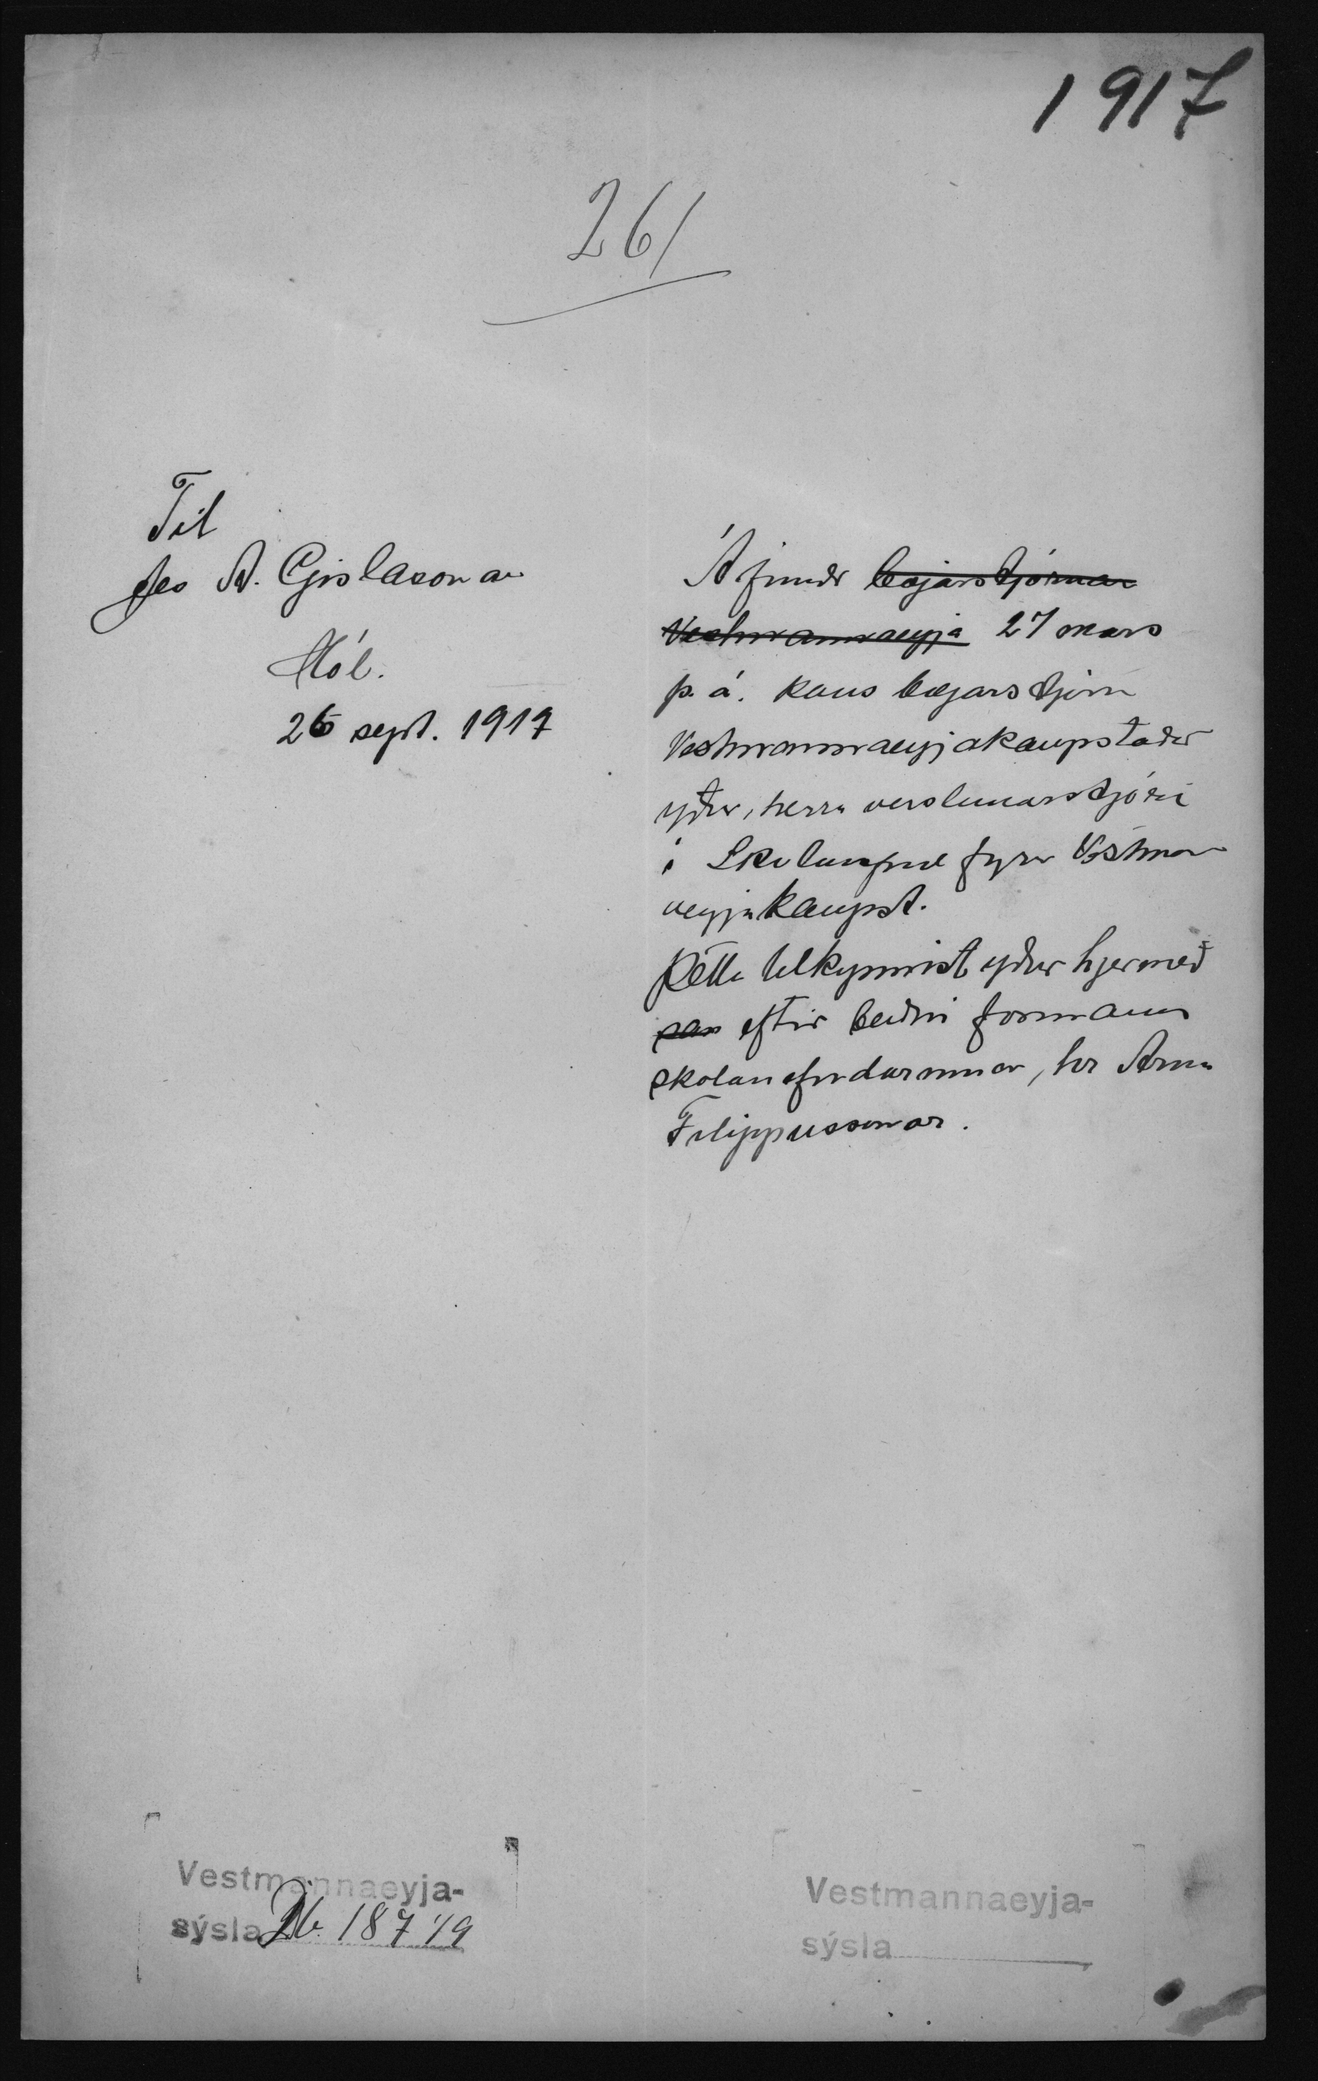 1917
261
Til
Jes A. Gislasonar
Hól.
26 sept. 1917
Á fundi bæjarstjórnar
Vestmannaeyja 27 mars
þ. á. kaus bæjarstjórn
Vestmannaeyjakaupstaðar
yður, herra verslunarstjóri
í skolanefnd fyrir Vestmanna
eyjakaupst.
Þetta tilkynnist yður hjermeð
eftir beiðni formanns
skolanefndarinnar, hr Árna
Filippussonar.
Vestmannaeyja-
sýsla Db. 187/19
Vestmannaeyja-
sýsla